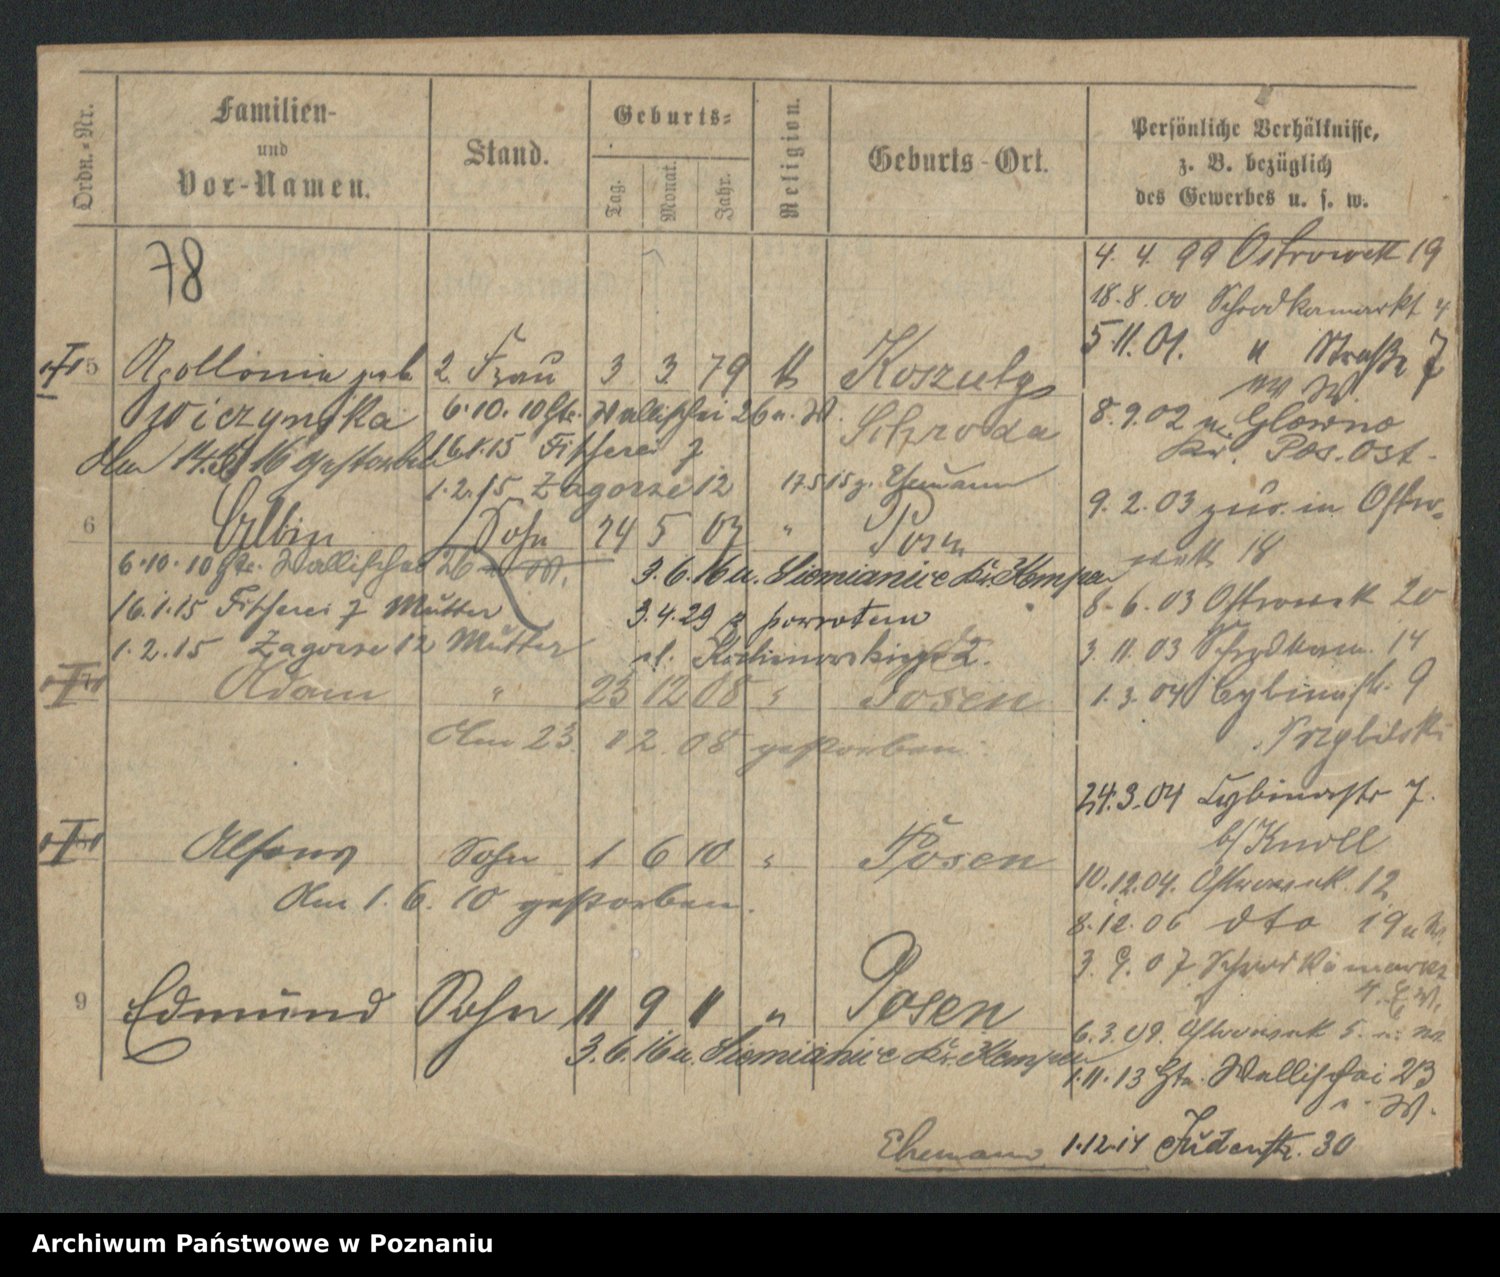 Ordn.-Nr.
Familien-
und
Vor-Namen.
Stand.
Geburts-
Tag.
Monat.
Jahr.
Religion.
Geburts-Ort.
Persönliche Verhältnisse,
z. B. bezüglich
des Gewerbes u. s. w.
78
4. 4. 99 Ostrowek 19
18.8.00 Schrodkamarkt 4
5 11. 01. " Straße 7
5 Apollonia geb 2. Frau 3 3. 79 Koszuty
Wiczynska
6.10.10 Gte. Wallischei 26 u. W.
Schroda
8.9.02 n. Glowno
Kr. Pos. Ost.
gestorben
16.1.15 Fischerei 7
1.2.15 Zagorze 12
17 5 15 z. Ehemann
9. 2. 03 zur. in Ostro-
wek 18
6 Albin Sohn 24 5 07 " Posen
6.10.10 Gte. Wallischei 26 W.
3.6.16 u. Siemianice Kr. Kempen
8. 6. 03 Ostrowek 20
16.1.15 Fischerei 7 Mutter
3.4.29 z powrotem
3. 11. 03 Schrodkam. 14
1.2.15 Zagorze 12 Mutter
1. 3. 04 Cybinastr. 9
7 Adam " 23 12 08 " Posen
Am 23. 12. 08 gestorben.
24.3.04 Cybinastr 7.
b/ Knoll
Alfons Sohn 1 6 10 " Posen
Am 1. 6. 10 gestorben.
10.12.04. Ostrowek. 12
8.12.06 dto 19 u W.
3. 9. 07 Schrodkamarkt
4. W.
9 Edmund Sohn 11 9 11 " Posen
3.6.16 u. Siemianice Kr. Kempen
6.3.09. Ostrowek 5.
1.11.13 Gte. Wallischei 23
W.
Ehemann 1.12.14 Judenstr. 30
Archiwum Państwowe w Poznaniu